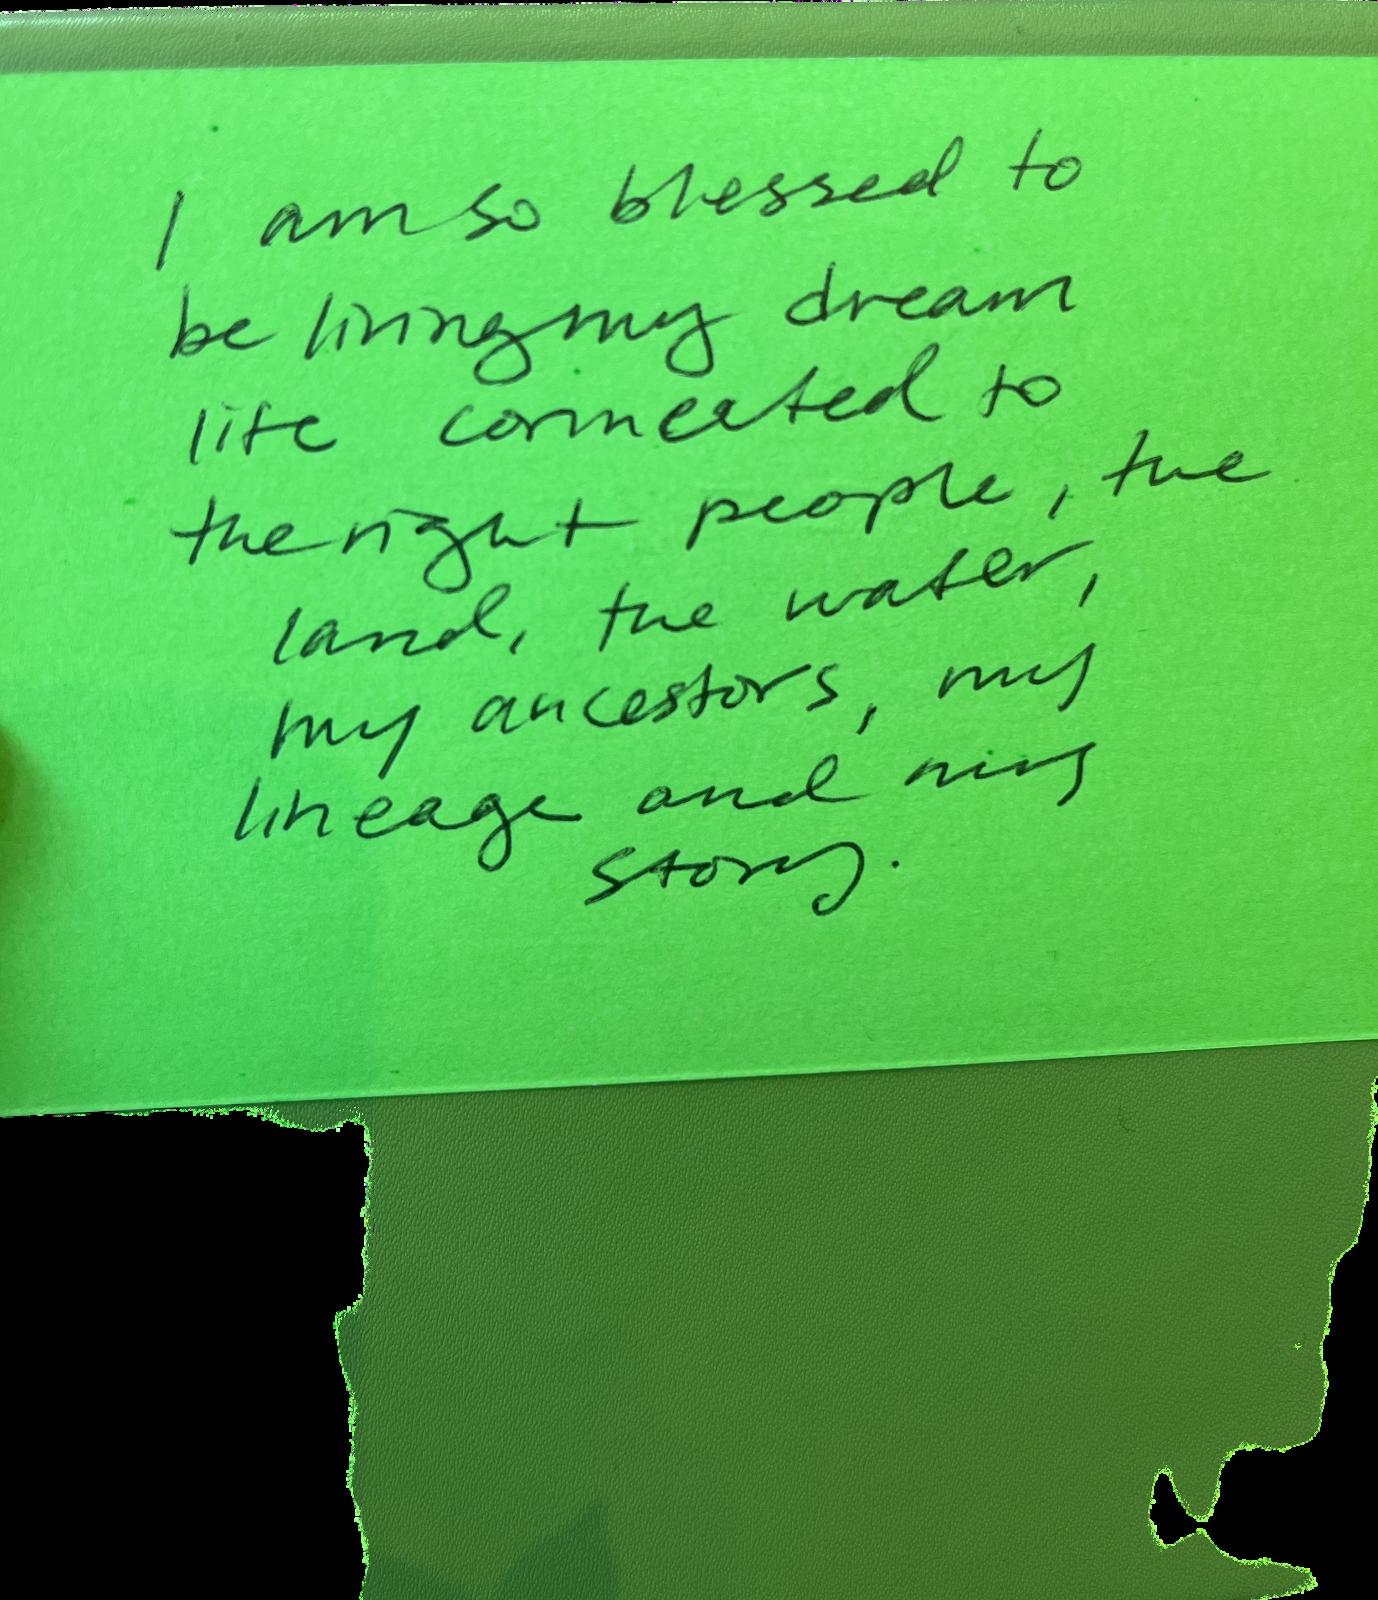 I am so blessed to
be living my dream
life connected to
the right people, the
land, the water,
my ancestors, my
lineage and my
story.